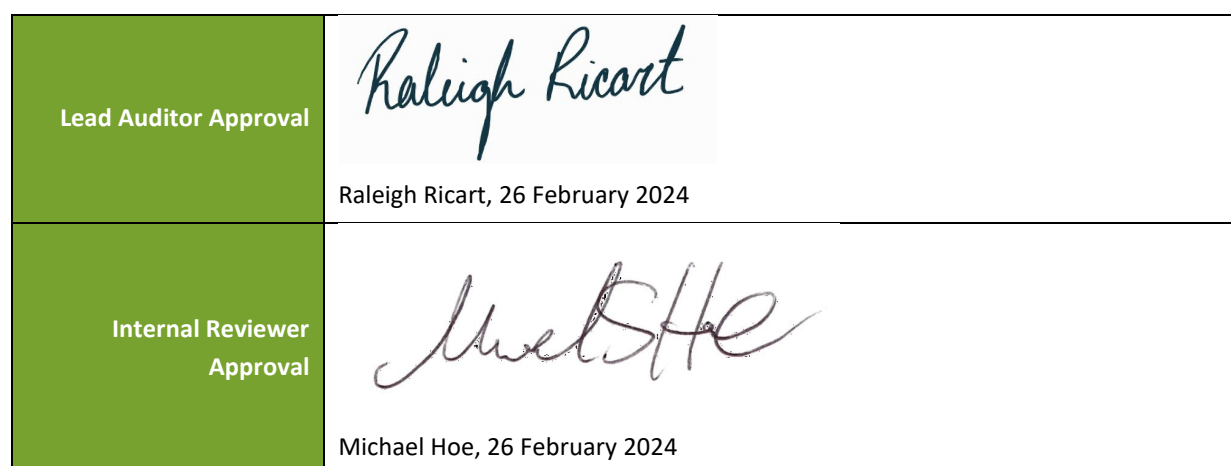 Lead Auditor Approval
Raleigh Ricart
Raleigh Ricart, 26 February 2024
Internal Reviewer
Approval
Michael Hoe, 26 February 2024